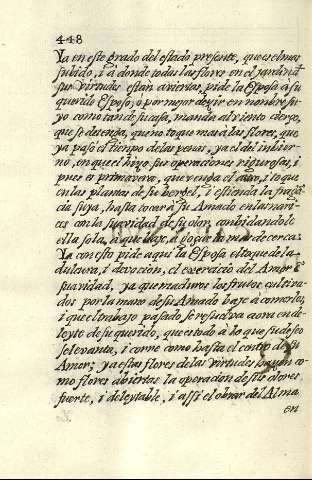 448
Ya en este grado del estado presente, que es el mas
subido, i à donde todas las flores en el jardin de
sus virtudes estàn aviertas, pide la Esposa à su
querido Esposo, ò por mejor dezir en nombre su-
yo como tan de su casa, manda al viento cierzo,
que se detenga, que no toque mas à las flores, que
ya pasò el tiempo de las penas, ya el del imbier-
no, en que el hizo sus operaciones rigurosas, i
pues es primavera, que venga el i toque
en las plantas de su bergel, i estienda la fragã-
cia suya, hasta tocar à su Amado en las nari-
ces con la suavidad de su olor, conbidandole
ella sola, à que baje, à gozar la mas de cerca.
Ya con esto pide aqui la Esposa el toque de la
dulzura, i devocion, el exercicio del Amor i
suavidad, ya que maduros los frutos cultiva-
dos por la mano de su Amado baje à comerlos,
i que el trabajo pasado se resuelva aora en de-
leyte de su querido, que es todo à lo que su deseo
se levanta, i corre como hasta el centro de su
Amor; ya estas flores de las virtudes hayan co-
mo flores abiertas la operacion de sus olores
fuerte, i deleytable, i assi el obrar del Alma
en